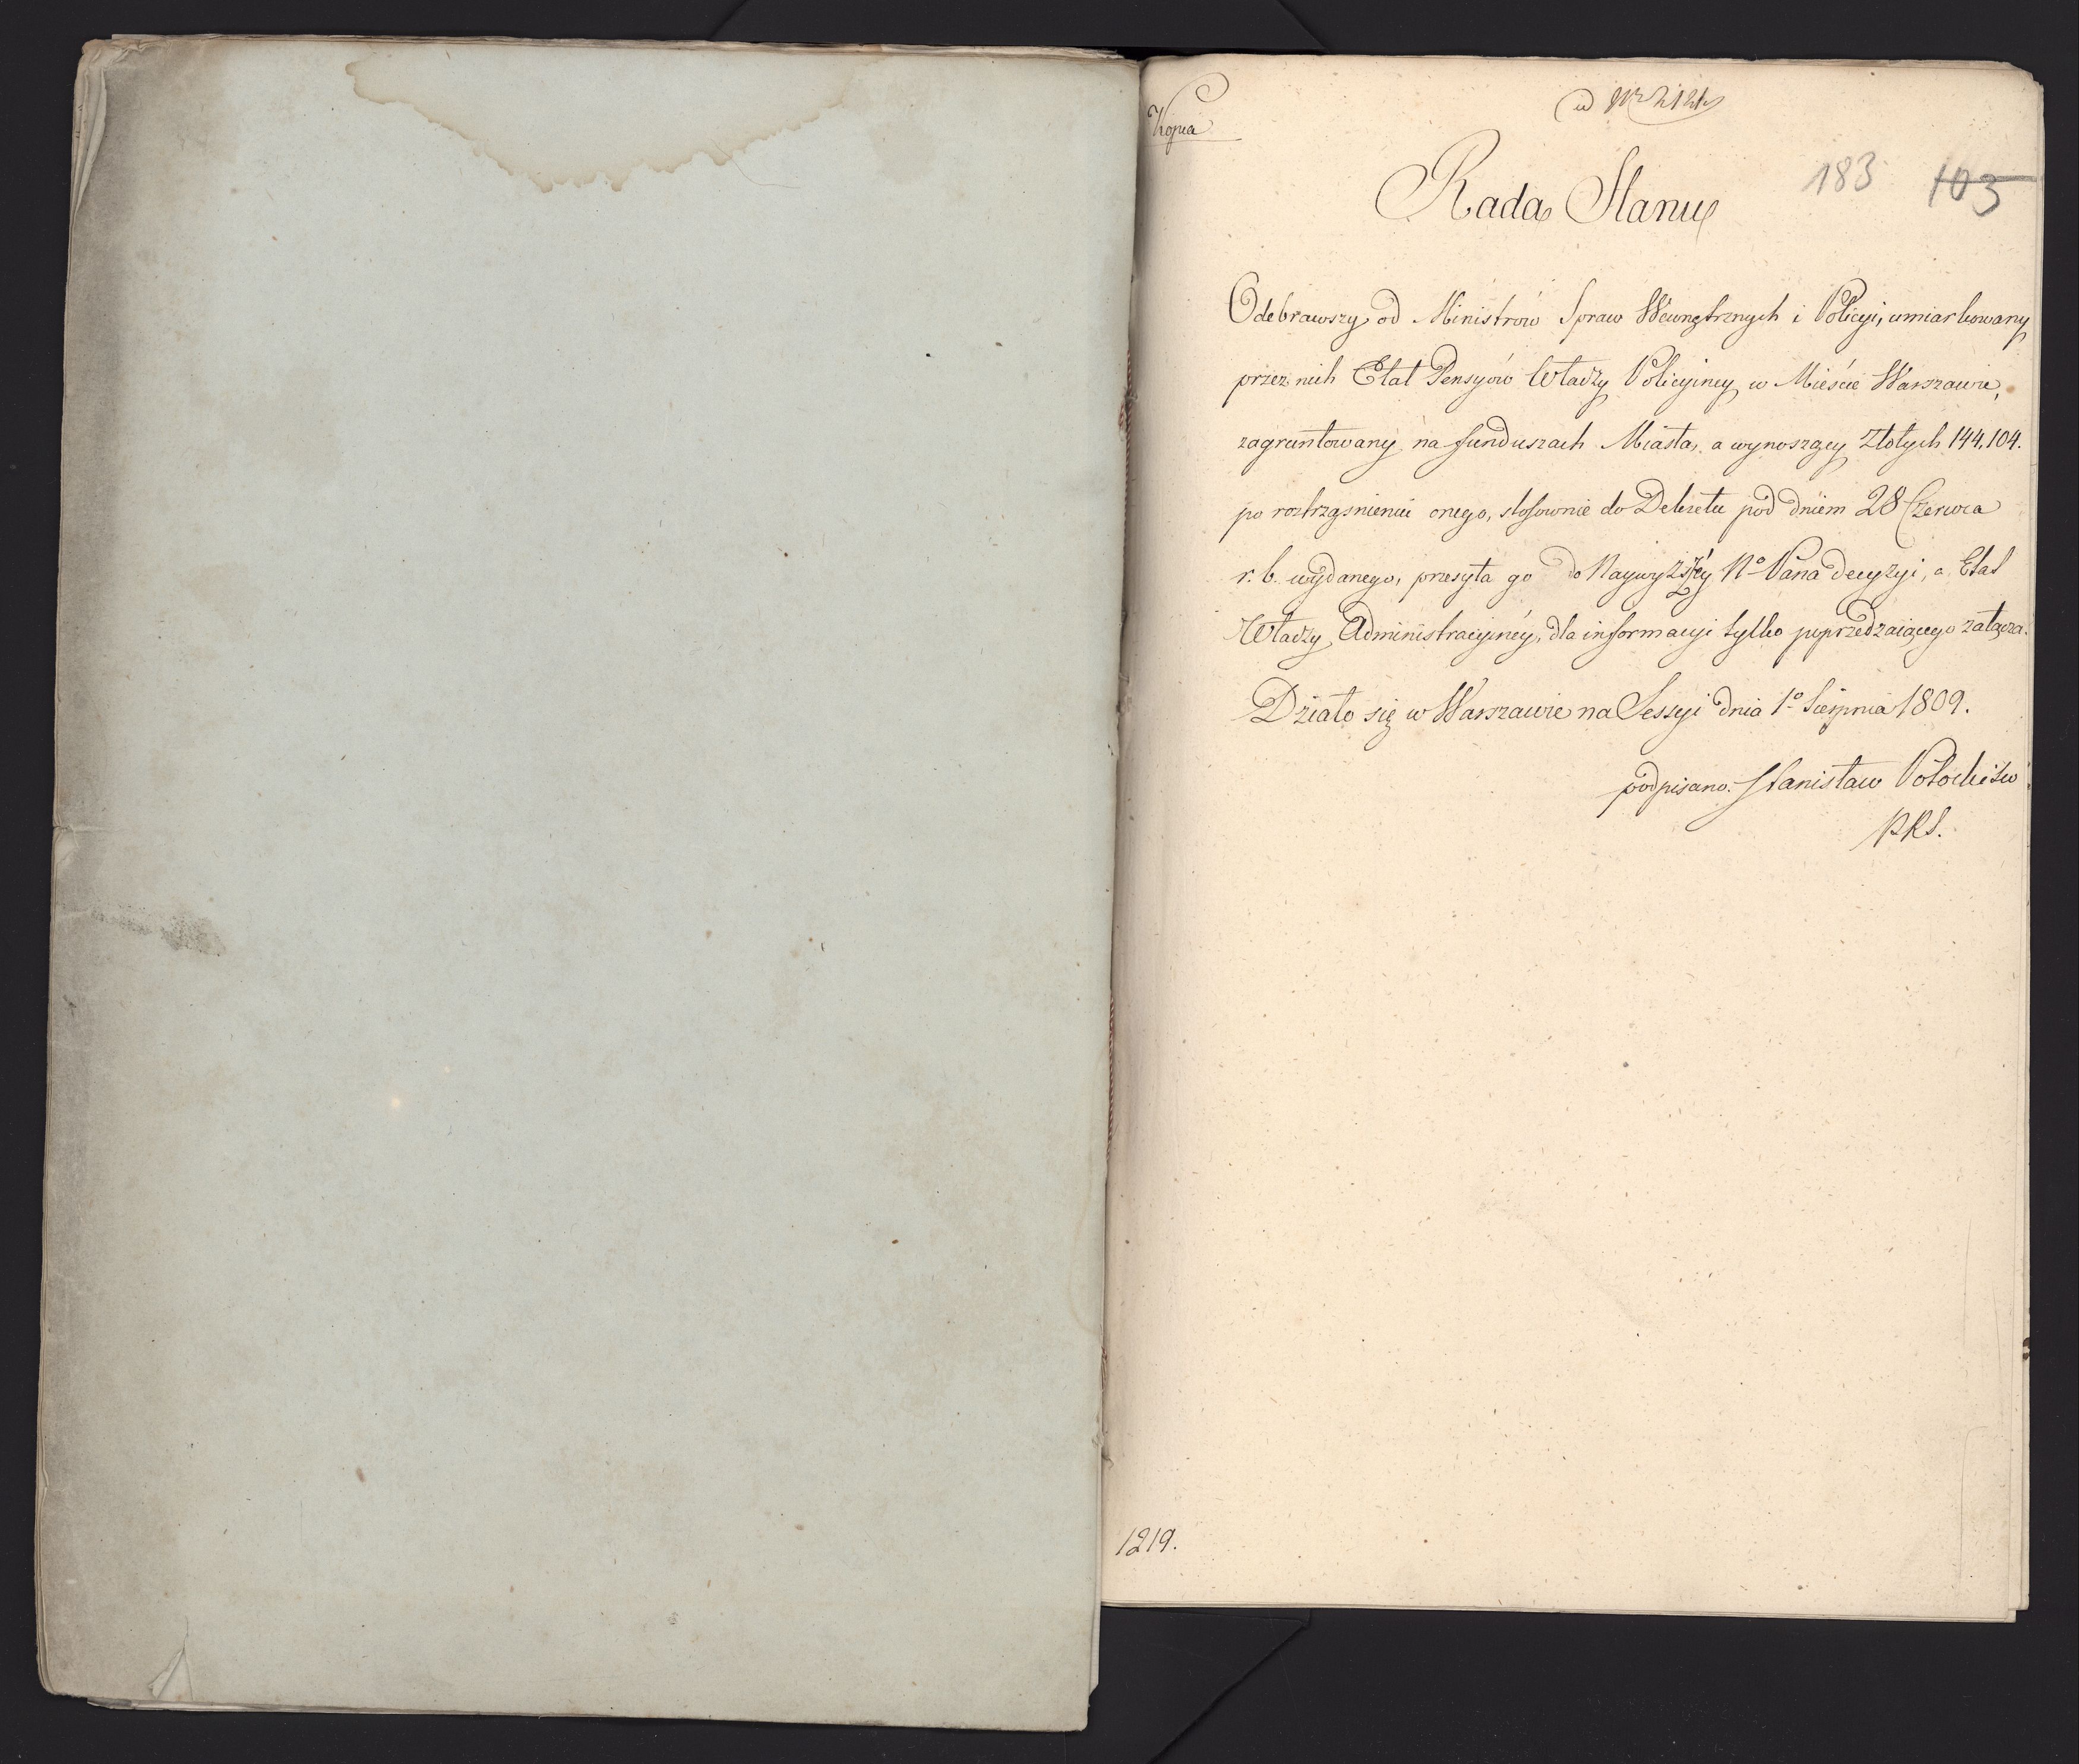 Kopia
ad Nr 2121
183 103
Rada Stanu
Odebrawszy od Ministrów Spraw Wewnętrznych i Policyi, umiarkowany
przez nich Etat Pensyów Władzy Policyiney w Mieście Warszawie,
zagruntowany na funduszach Miasta, a wynoszący Złotych 144,104.
po roztrząśnieniu onego, stosownie do Dekretu pod dniem 28 Czerwca
r. b. wydanego, przesyła go do Naywyższéy No Pana decyzyi, a Etat
Władzy Administracyinéy, dla informacyi tylko poprzedzaiącego załącza.
Działo się w Warszawie na Sessyi dnia 1o Sierpnia 1809.
podpisano. Stanisław Potocki
PRS.
1219.